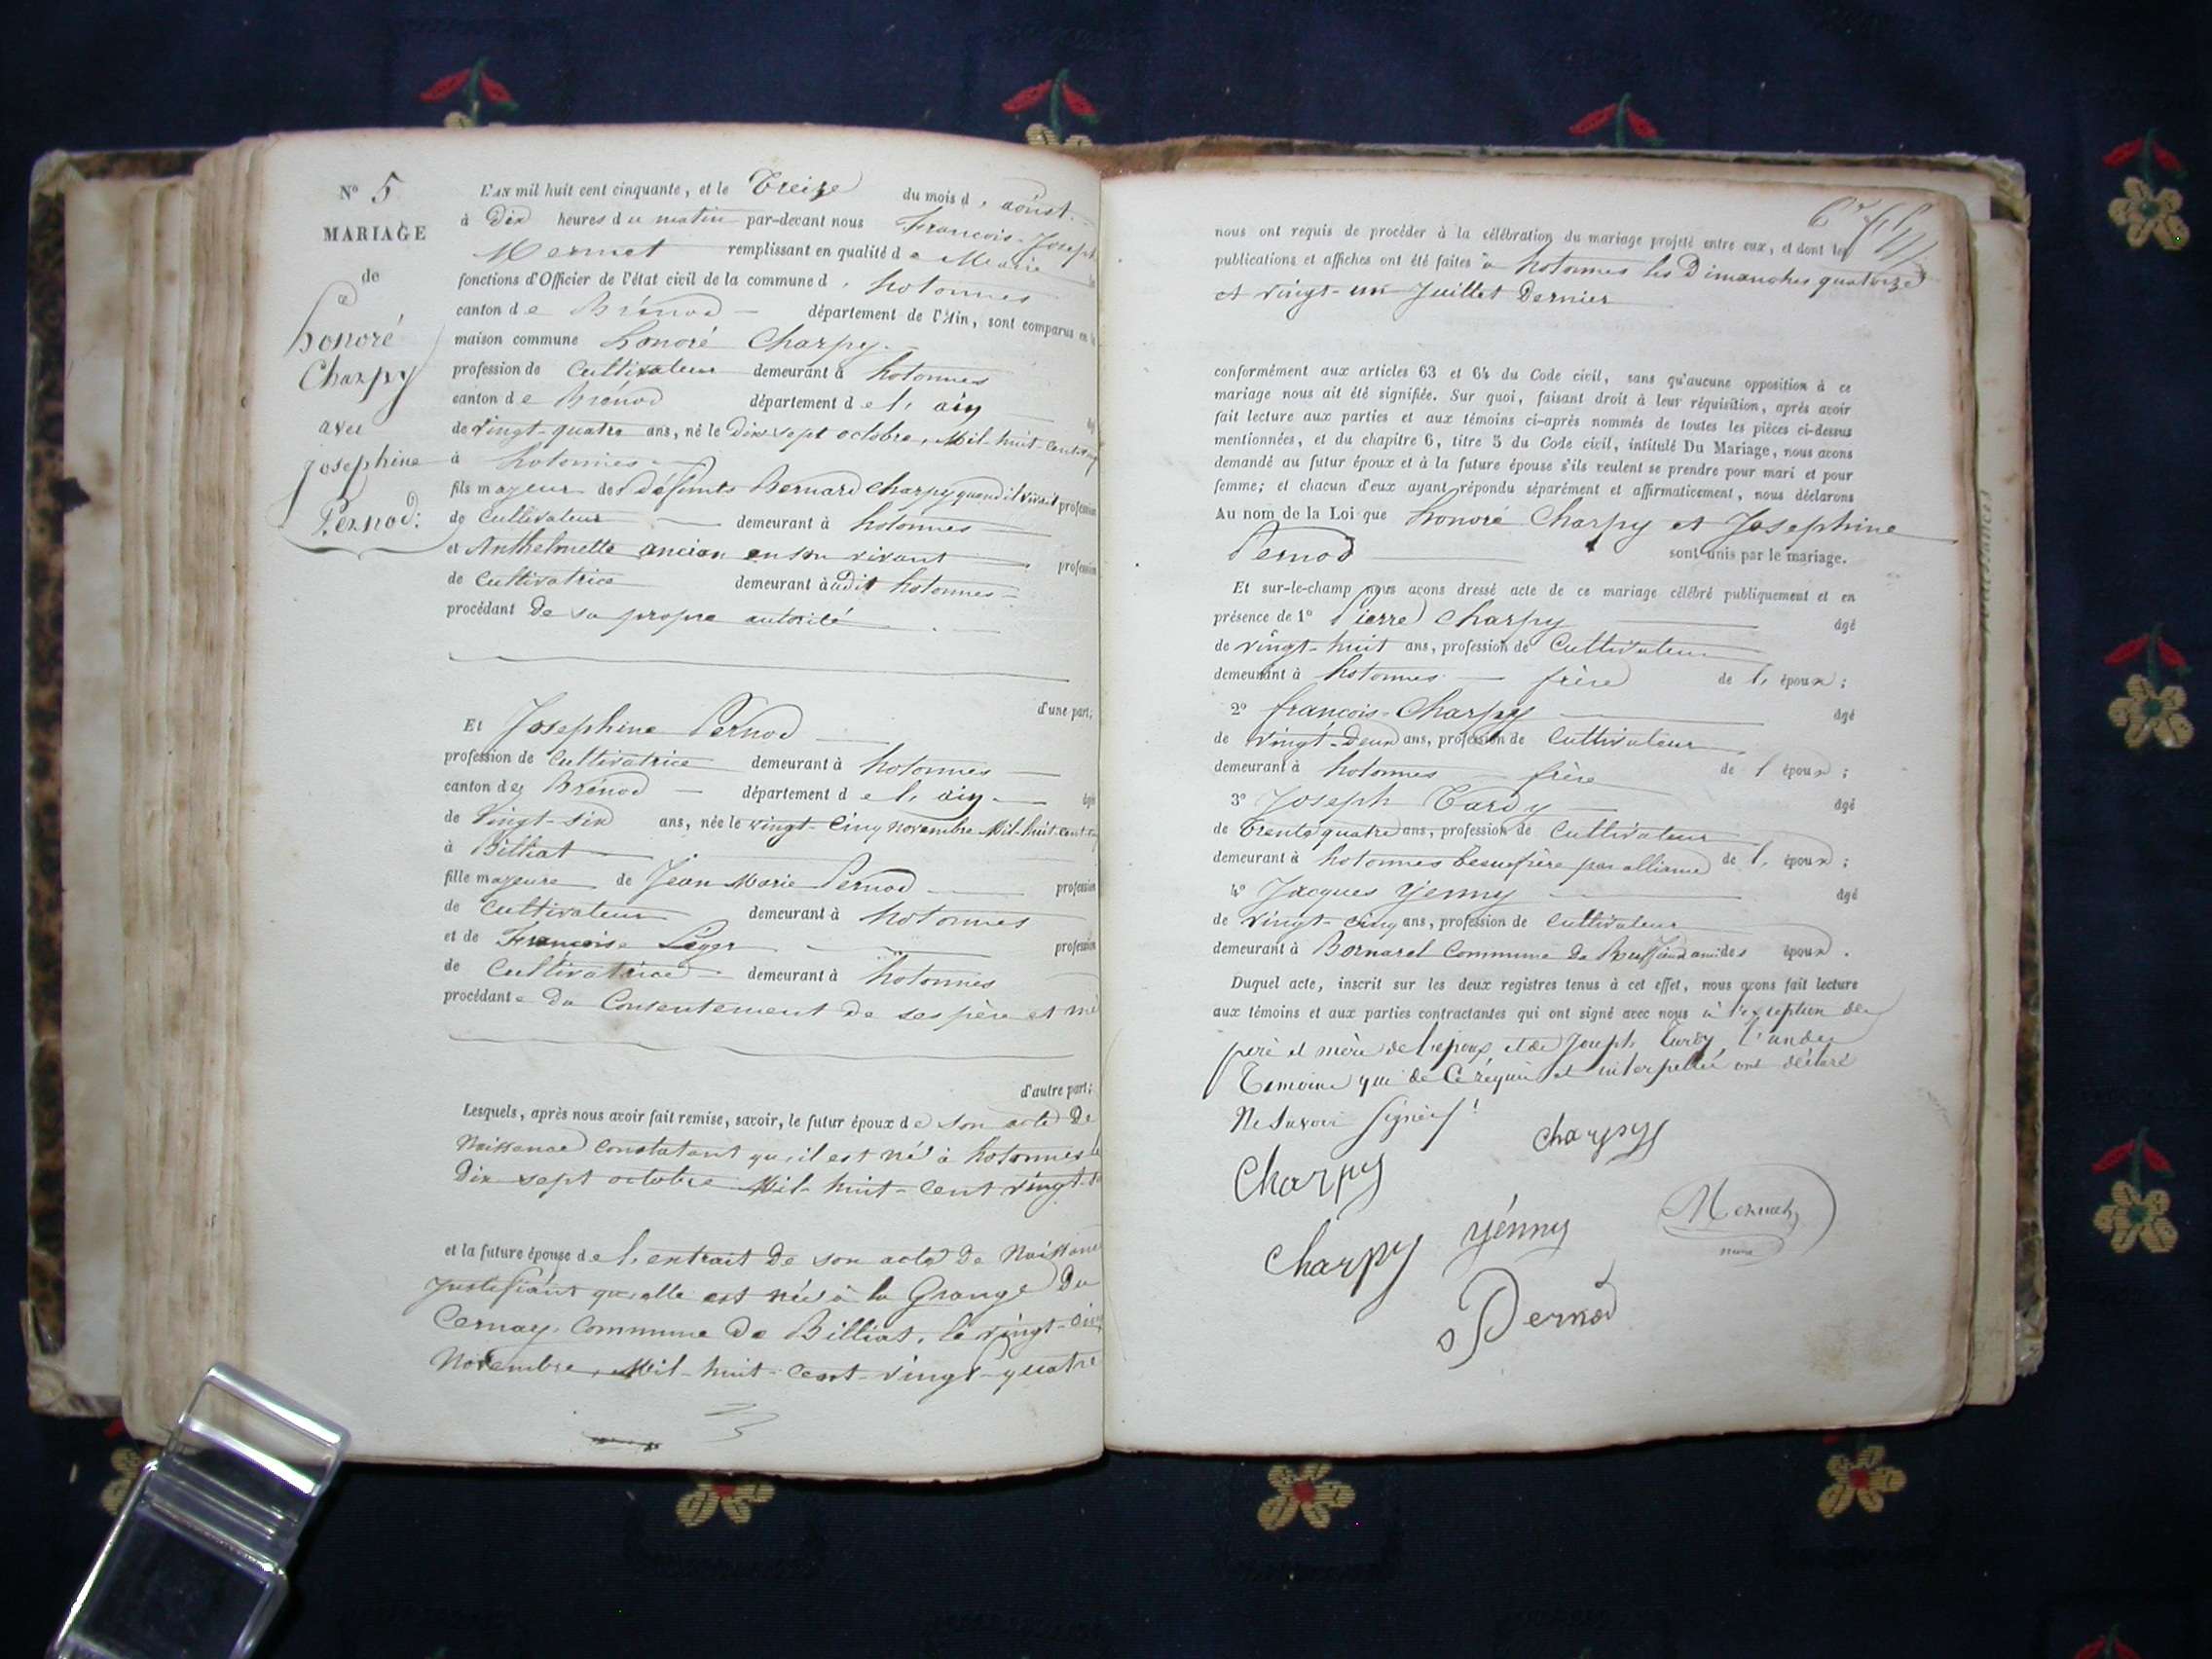 N° 5
MARIAGE
de
honoré
Charpy
avec
Josephine
Pernod
L'AN mil huit cent cinquante, et le Treize du mois d'aoûst
à Dix heures du matin par-devant nous François-Joseph
Mermet remplissant en qualité de Maire les
fonctions d'Officier de l'état civil de la commune d'hotonnes
canton de Brénod département de l'Ain, sont comparus en la
maison commune honoré Charpy
profession de Cultivateur demeurant à hotonnes
canton de Brénod département de l'ain âgé
de vingt-quatre ans, né le Dix sept octobre, Mil-huit-cent
à hotonnes
fils majeur de défunts Bernard Charpy quand il vivait profession
de Cultivateur demeurant à hotonnes
et Anthelmette ancian en son vivant profession
de Cultivatrice demeurant audit hotonnes
procédant De sa propre autorité
d'une part;
Et Josephine Pernod
profession de Cultivatrice demeurant à hotonnes
canton de Brénod département de l'ain âgée
de Vingt-six ans, née le vingt-cinq novembre Mil-huit-cent
à Billiat
fille majeure de Jean Marie Pernod profession
de Cultivateur demeurant à hotonnes
et de Françoise Léger profession
de Cultivatrice demeurant à hotonnes
procédante Du Consentement de ses père et
d'autre part;
Lesquels, après nous avoir fait remise, savoir, le futur époux de son acte De
Naissance Constatant qu'il est né à hotonnes le
Dix sept octobre Mil-huit-cent vingt
et la future épouse de l'extrait de son acte de Naissance
Justifiant qu'elle est née à la Grange Du
Cernay, Commune De Billiat, le vingt-cinq
Novembre, Mil-huit-cent-vingt-quatre
nous ont requis de procéder à la célébration du mariage projeté entre eux, et dont les
publications et affiches ont été faites à hotonnes les Dimanches quatorze
et vingt-un Juillet Dernier
conformément aux articles 63 et 64 du Code civil, sans qu'aucune opposition à ce
mariage nous ait été signifiée. Sur quoi, faisant droit à leur réquisition, après avoir
fait lecture aux parties et aux témoins ci-après nommés de toutes les pièces ci-dessus
mentionnées, et du chapitre 6, titre 5 du Code civil, intitulé Du Mariage, nous avons
demandé au futur époux et à la future épouse s'ils veulent se prendre pour mari et pour
femme; et chacun d'eux ayant répondu séparément et affirmativement, nous déclarons
Au nom de la Loi que honoré Charpy et Josephine
Pernod sont unis par le mariage.
Et sur-le-champ nous avons dressé acte de ce mariage célébré publiquement et en
présence de 1° Pierre Charpy âgé
de vingt-huit ans, profession de Cultivateur
demeurant à hotonnes frère de l'époux;
2° françois-Charpy âgé
de vingt-Deux ans, profession de Cultivateur
demeurant à hotonnes frère de l'époux;
3° Joseph Tardy âgé
de trente quatre ans, profession de Cultivateur
demeurant à hotonnes beaufrère par alliance de l'époux;
4° Jacques Yenny âgé
de vingt-cinq ans, profession de Cultivateur
demeurant à Bornarel Commune De ami des époux.
Duquel acte, inscrit sur les deux registres tenus à cet effet, nous avons fait lecture
aux témoins et aux parties contractantes qui ont signé avec nous à l'exeption des
père et mère de l'epoux et de Joseph Tardy l'un des
Temoins qui de ce requis et interpellé ont déclaré
Ne Savoir Signer
Charpy
Charpy
Charpy
Yénny
Mermet
maire
Pernod